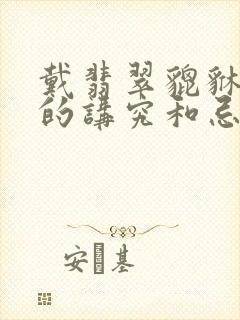 戴翡翠貔貅
的講究和忌
安基